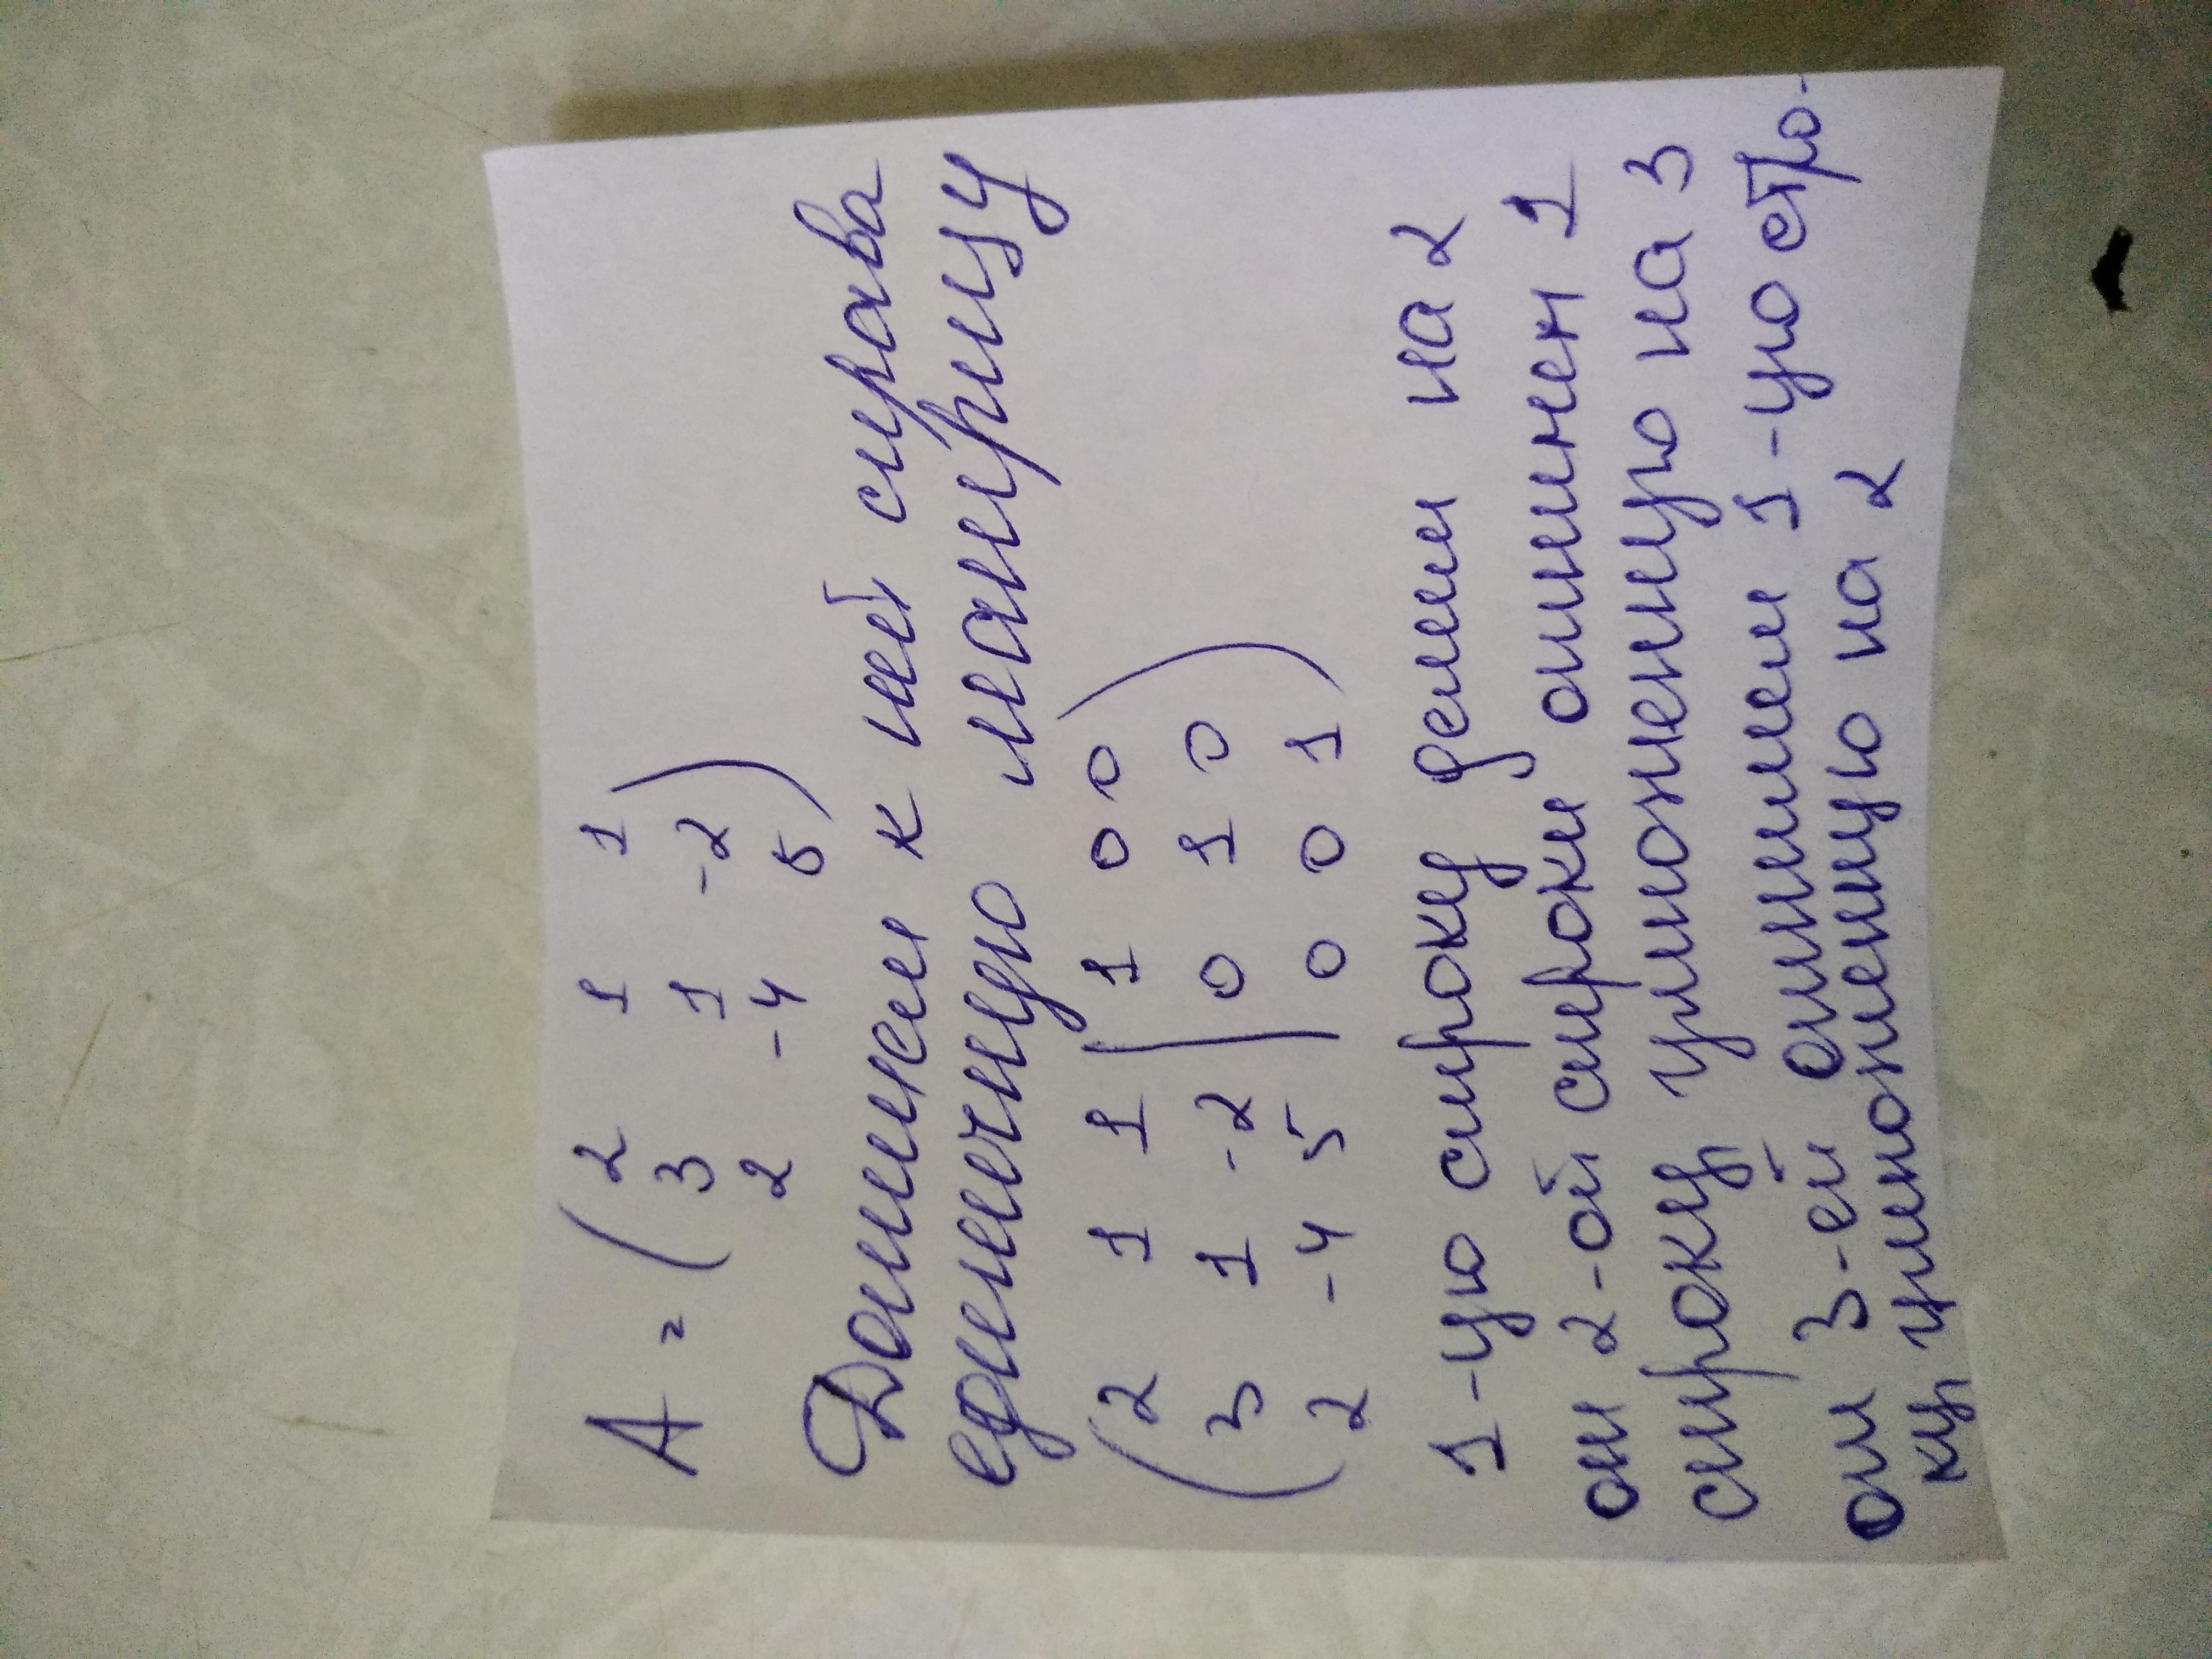 A = ( 2 1 1
3 1 -2
2 -4 5 )
Допишем к ней справа
единичную матрицу
( 2 1 1 | 1 0 0 )
3 1 -2 | 0 1 0
2 -4 5 | 0 0 1
1-ую строку делим на 2
от 2-ой строки отнимем 1
строку, умноженную на 3
от 3-ей отнимем 1-ую стро-
ку, умноженную на 2